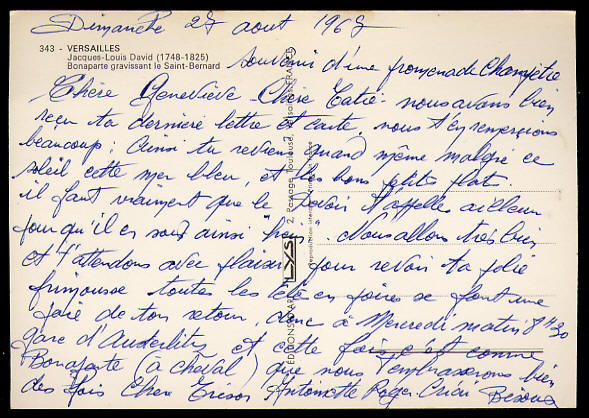 Dimanche 27 aout 1967
343 - VERSAILLES
Jacques-Louis David (1748-1825)
Bonaparte gravissant le Saint-Bernard
souvenir d'une promenade Champêtre
Chère Geneviève - Chère Catie - nous avons bien
reçu ta dernière lettre et carte, nous t'en remercions
beaucoup; Ainsi tu reviens quand même malgré ce
soleil cette mer bleu, et les bons petits plats.
il faut vraiment que le devoir t'appelles ailleur
pour qu'il en soit ainsi. Nous allons très bien
et t'attendons avec plaisir pour revoir ta jolie
frimousse toutes les en foires se font une
joie de ton retour, donc à Mercredi matin 8H30
gare d'Austerlitz et cette fois c'est comme
Bonaparte (à cheval) que nous t'embrasserons bien
des fois Chere Trésor Antoinette Roger
EDITIONS D'ART LYS
2, Passage Toulouse, Versailles FRANCE